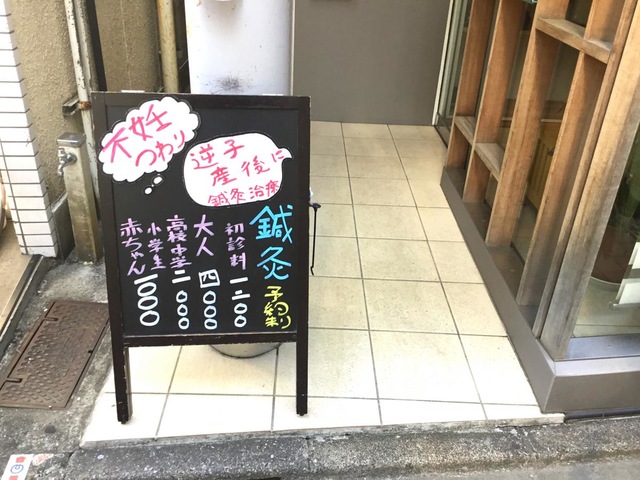 不妊
つわり
逆子
産後に
鍼灸治療
鍼灸 予約制
初診料 一二〇〇
大人 四〇〇〇
高校中学 二〇〇〇
小学生
赤ちゃん 一〇〇〇